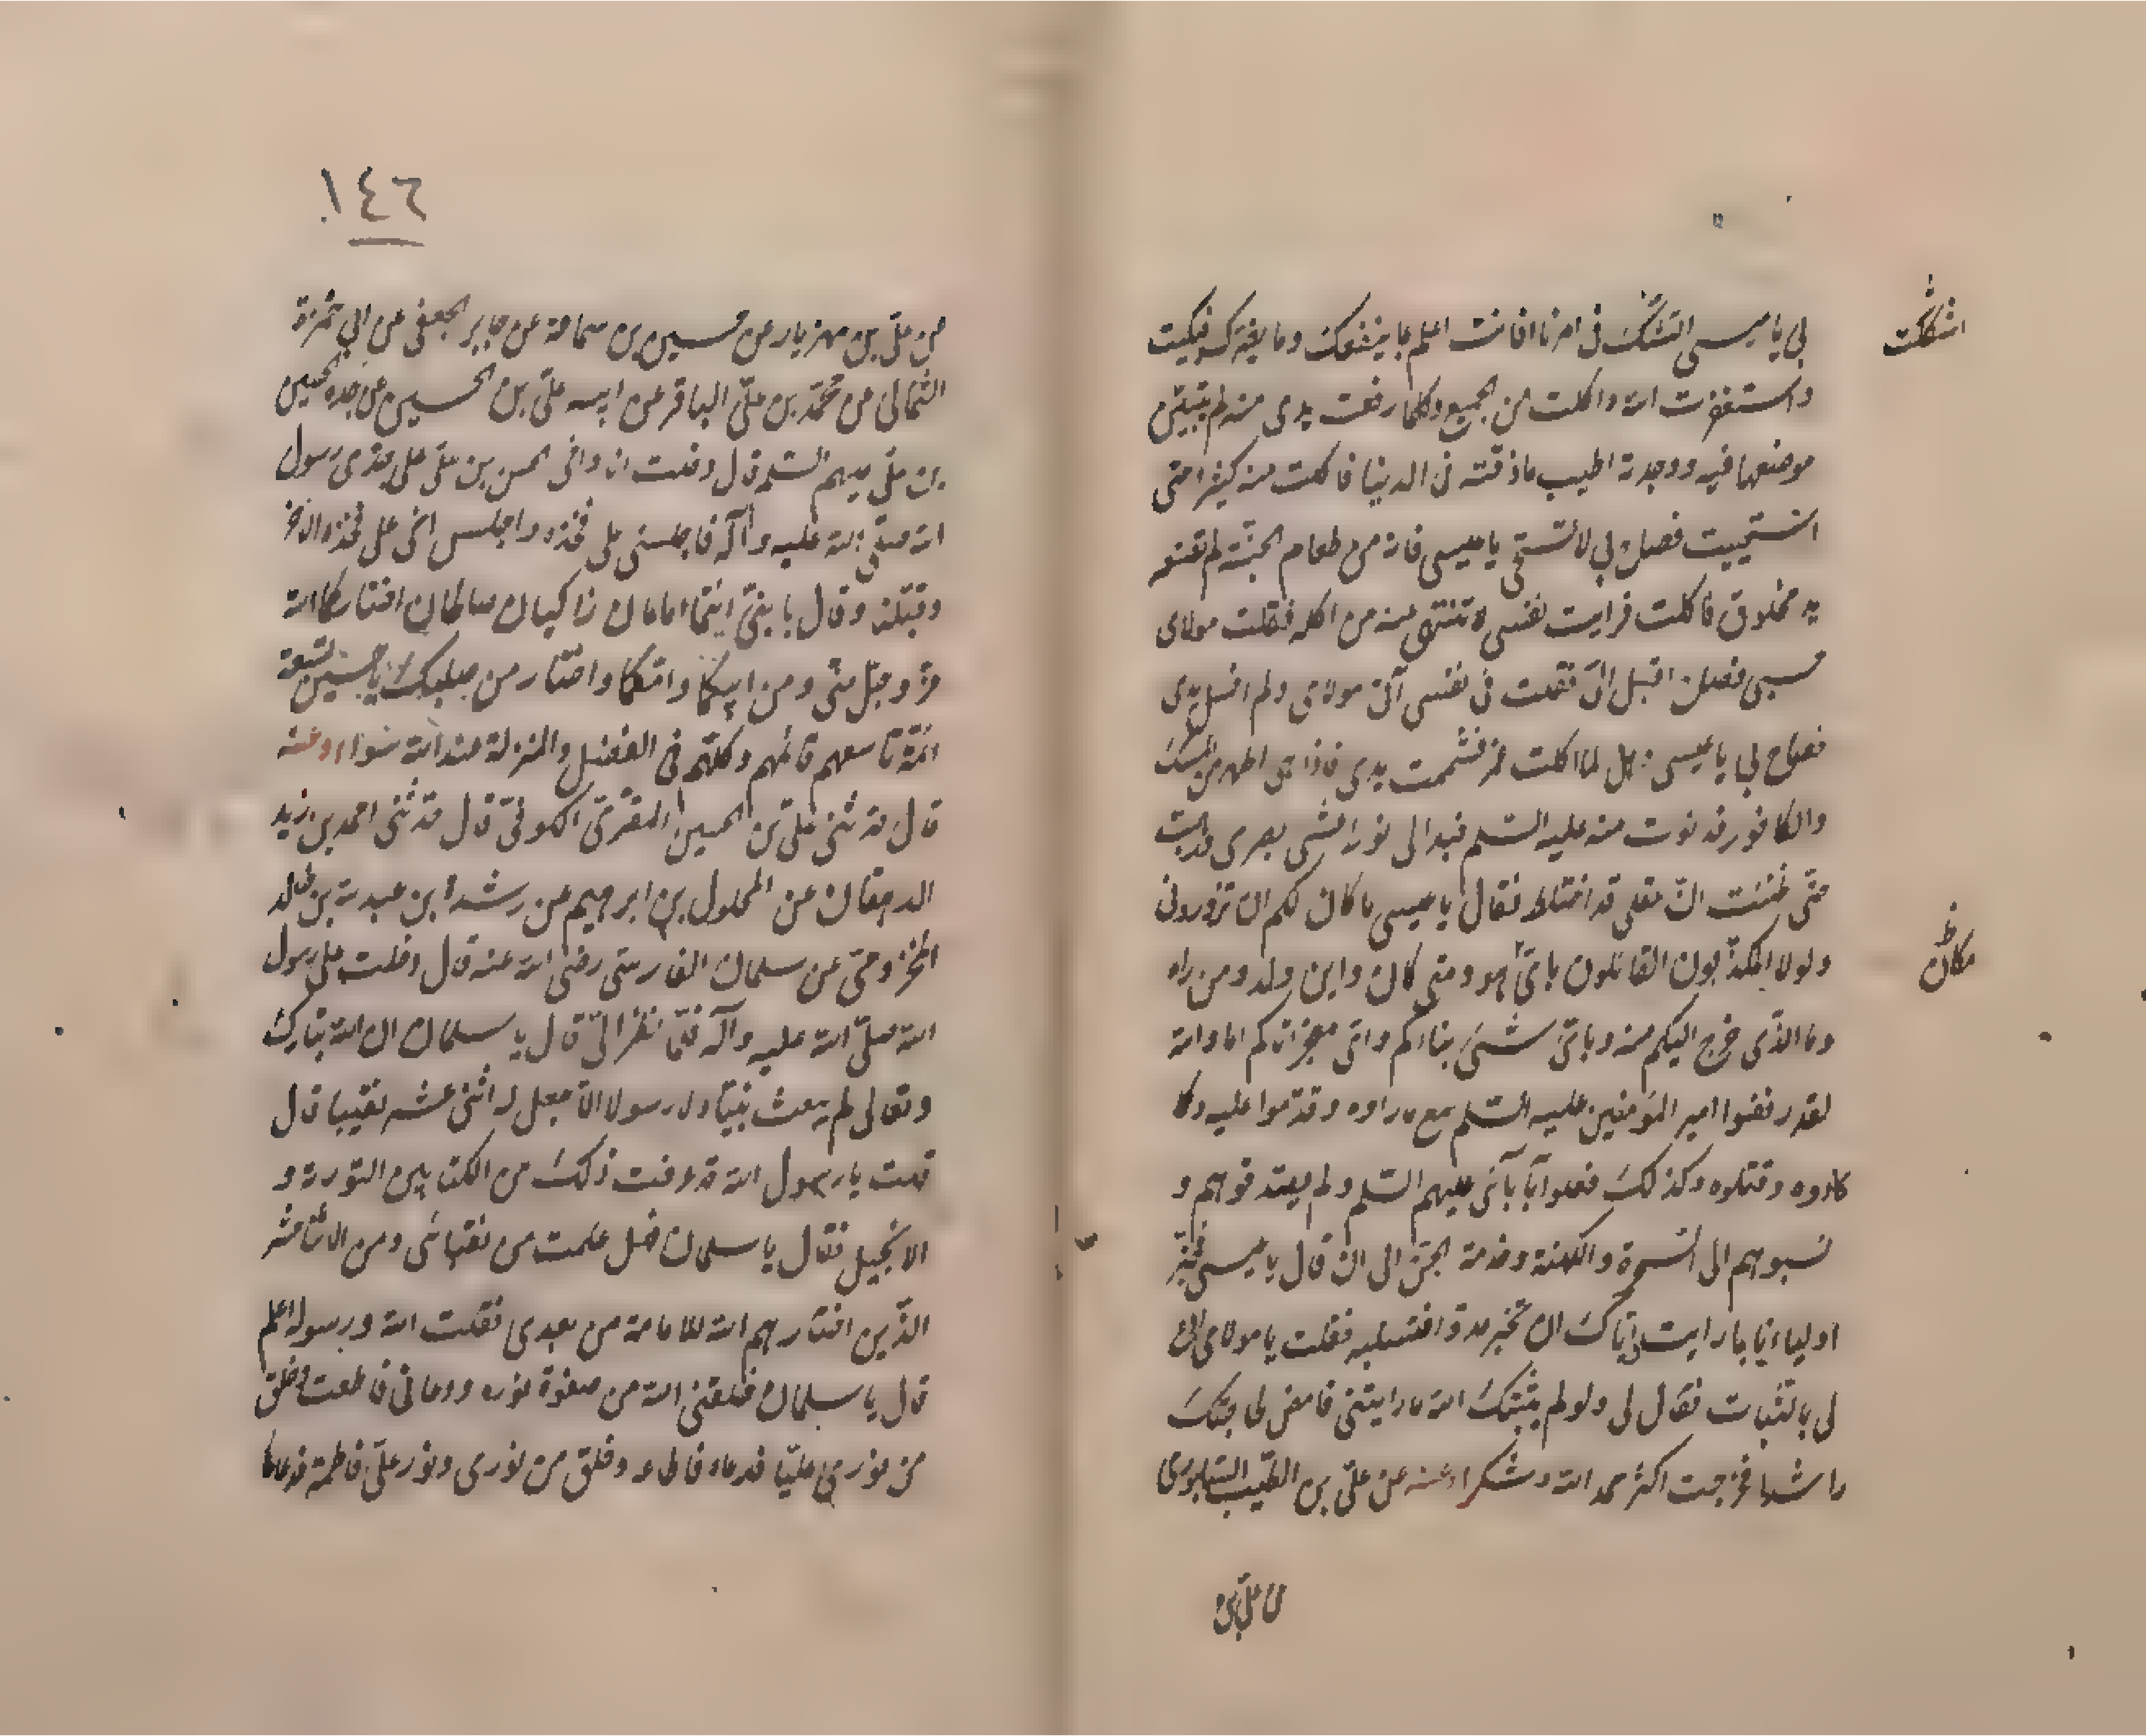 اشككت
بي يا عيسى التشكّ في امرنا افانت اعلم بما ينفعك وما يضرك فبكيت
واستغفرت الله واكلت من الجميع وكلما رفعت يدى منه لم يتبيّن
موضعها فيه ووجدته اطيب ما ذقته في الدنيا فاكلت منه كثيرا حتى
استحييت فصاح بي لا تستحى يا عيسى فانه من طعام الجنّة لم تصنعه
يد مخلوق فاكلت فرايت نفسى لا تنتهى عنه من اكله فقلت مولاى
حسبى فصاح بى اقبل الىّ فقلت فى نفسى آتى مولاى ولم اغسل يدى
فصاح بي يا عيسى وهل لما اكلت غمر فشممت يدى فاذا هى اطهر من المسك
والكافور فدنوت منه عليه السّلم فبدا لى نور اغشى بصرى ورهبت
حتّى ظننت انّ عقلى قد اختلط فقال يا عيسى ما كان لكم ان تزورونى
مكان
ولولا المكذّبون القائلون باىّ هو ومتى كان واين ولد ومن راه
وما الذّى خرج اليكم منه وباىّ شىء نبّاكم واىّ معجزاتكم اما والله
لقد رفضوا امير المؤمنين عليه السّلم مع ما راوه وقدّموا عليه وكا
كادوه وقتلوه وكذلك فعلوا بآبائى عليهم السّلم ولم يصدّقوهم و
نسبوهم الى السّحرة والكهنة وخدمة الجنّ الى ان قال يا عيسى فخبّر
اولياءنا بما رايت وايّاك ان تخبر عدوّا فتسلبه فقلت يا مولاى ادع
لى بالثبات فقال لى ولو لم يثبّتك الله ما رايتنى فامض لحاجتك
راشدا فخرجت اكثر حمد الله وشكرا وعنه عن علىّ بن الطّيب الصّابونى
عن علىّ بن
١٤٦
عن علىّ بن مهزيار عن حسين بن سماعة عن جابر الجعفى عن ابى حمزة
الثّمالى عن محمّد بن علىّ الباقر عن ابيه علىّ بن الحسين عن جده الحسين
بن علىّ عليهم السّلم قال دخلت انا واخى الحسن بن علىّ على جدّى رسول
الله صلّى الله عليه وآله فاجلسنى على فخذه واجلس اخى على فخذه الاخر
وقبّلنا وقال يا بنىّ انتما امامان زاكيان صالحان اختاركما الله
عزّ وجلّ منّى ومن ابيكما وامّكما واختار من صلبك يا حسين تسعة
ائمّة تاسعهم قائمهم وكلّهم فى الفضل والمنزلة عند الله سواء وعنه
قال حدّثنى علىّ بن الحسين المقرّىّ الكوفىّ قال حدّثنى احمد بن زيد
الدهقان عن المحلول بن ابرهيم عن رشدة ابن عبد الله بن خالد
المخزومىّ عن سلمان الفارسىّ رضى الله عنه قال دخلت على رسول
الله صلّى الله عليه وآله فلمّا نظر الىّ قال يا سلمان ان الله تبارك
وتعالى لم يبعث نبيّا ولا رسولا الّا جعل له اثنى عشر نقيبا قال
قلت يا رسول الله قد عرفت ذلك من الكتابين التورية و
الانجيل فقال يا سلمان فهل علمت من نقبائى ومن الاثنا عشر
الذّين اختارهم الله للامامة من بعدى فقلت الله ورسوله اعلم
قال يا سلمان خلقنى الله من صفوة نوره ودعانى فاطعت وخلق
من نورى عليّا فدعاه فاطاعه وخلق من نورى ونور علىّ فاطمة فدعاها